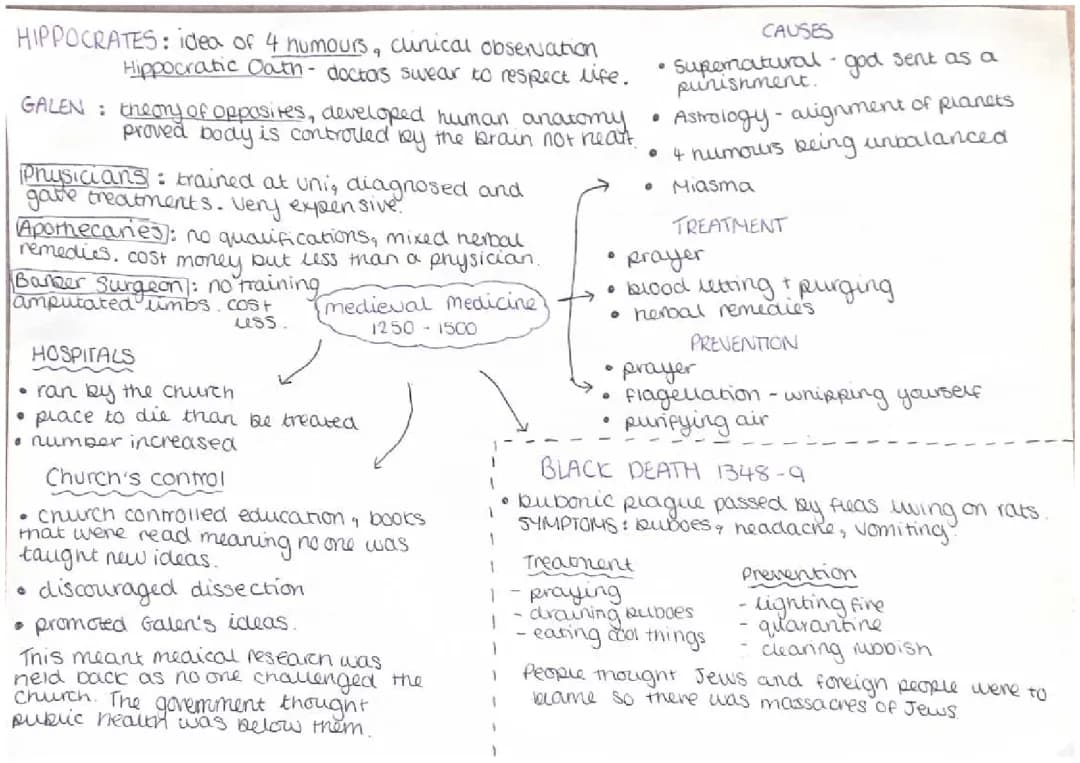 HIPPOCRATES: idea of 4 humours, clinical observation
Hippocratic Oath - doctors swear to respect life.
GALEN : theory of opposites, developed human anatomy
proved body is controlled by the brain not heart.
Physicians : trained at uni, diagnosed and
gave treatments. Very expensive.
Apothecaries: no qualifications, mixed herbal
remedies. cost money but less than a physician.
Barber Surgeon: no training
amputated limbs. cost
less.
medieval medicine
1250 - 1500
HOSPITALS
• ran by the church
• place to die than be treated
• number increased
Church's control
• church controlled education, books
that were read meaning no one was
taught new ideas.
• discouraged dissection
• promoted Galen's ideas.
This meant medical research was
held back as no one challenged the
church. The government thought
public health was below them.
CAUSES
• supernatural - god sent as a
punishment.
• Astrology - alignment of planets
• 4 humours being unbalanced
• Miasma
TREATMENT
• prayer
• blood letting + purging
• herbal remedies
PREVENTION
• prayer
• flagellation - whipping yourself
• purifying air
BLACK DEATH 1348-9
• bubonic plague passed by fleas living on rats.
SYMPTOMS: buboes, headache, vomiting.
Treatment
- praying
- draining buboes
- eating cool things
Prevention
- lighting fire
- quarantine
- clearing rubbish
People thought Jews and foreign people were to
blame so there was massacres of Jews.